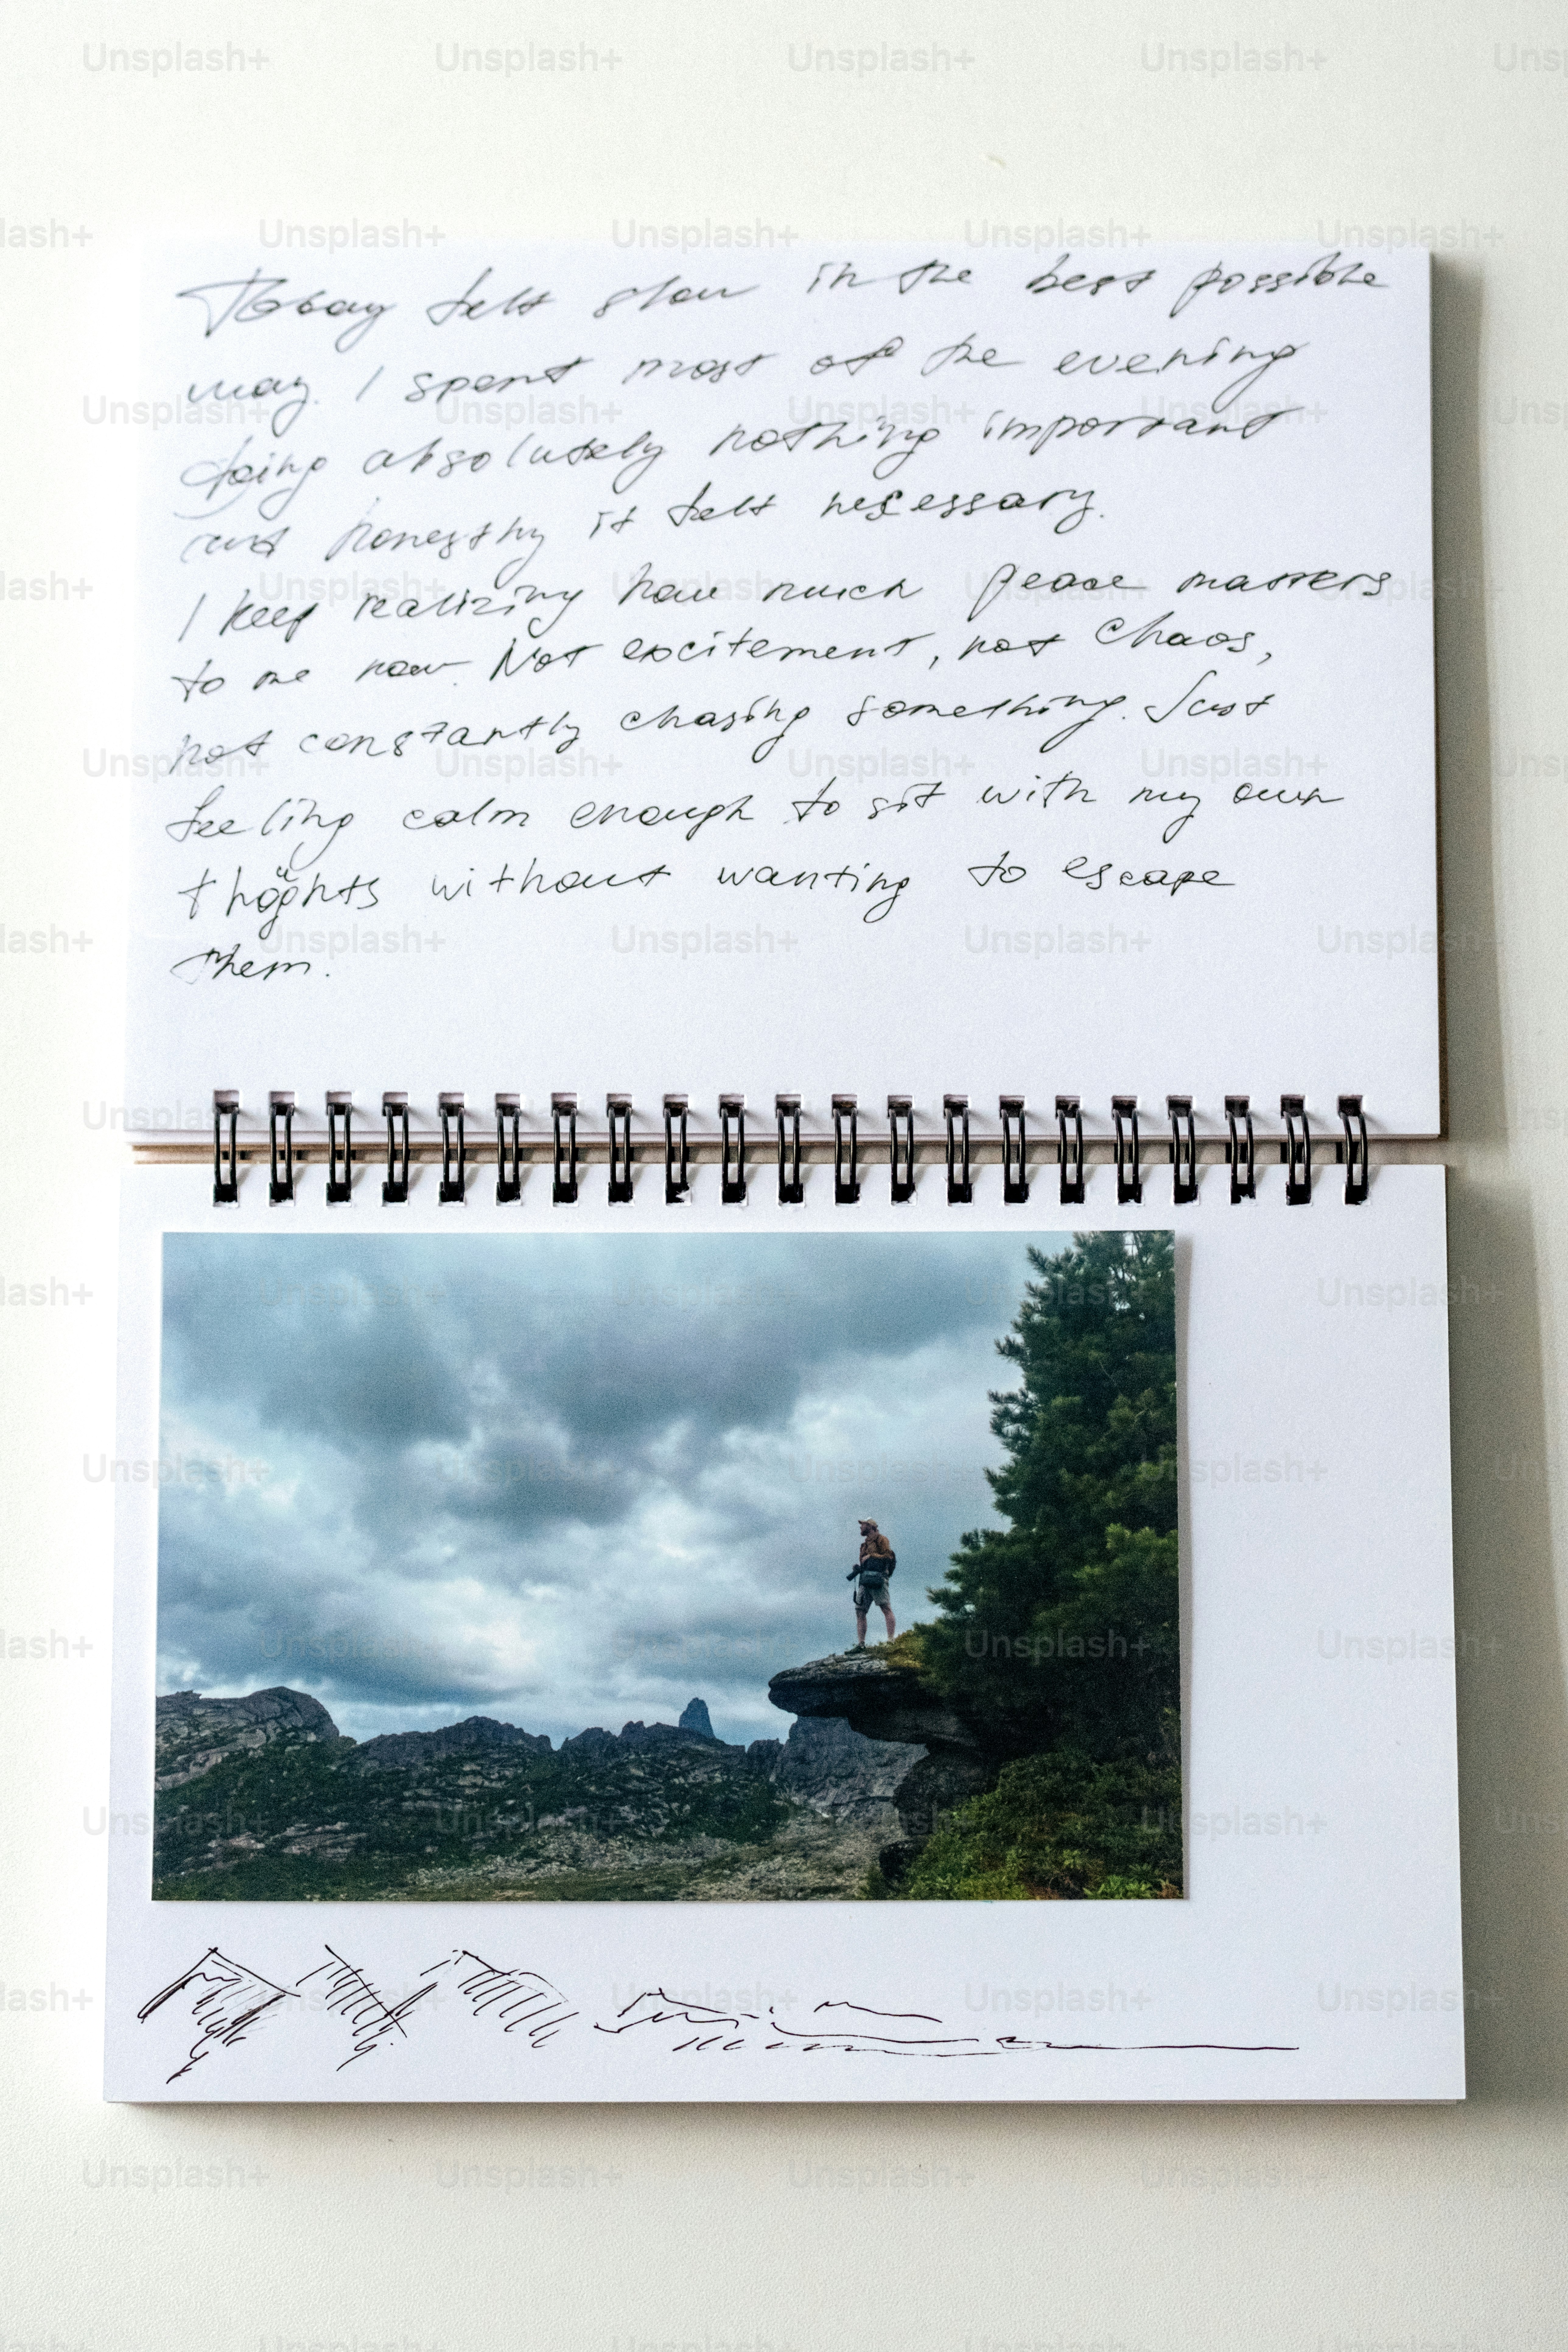 Today felt slow in the best possible
way. I spent most of the evening
doing absolutely nothing important
and honestly it felt necessary.
I keep realizing how much peace matters
to me now. Not excitement, not chaos,
not constantly chasing something. Just
feeling calm enough to sit with my own
thoughts without wanting to escape
them.
Unsplash+